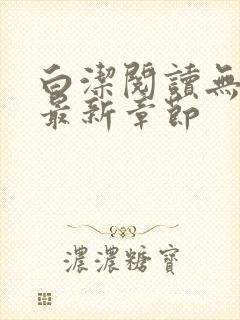 白潔閱讀無
最新章節
濃濃糖寶